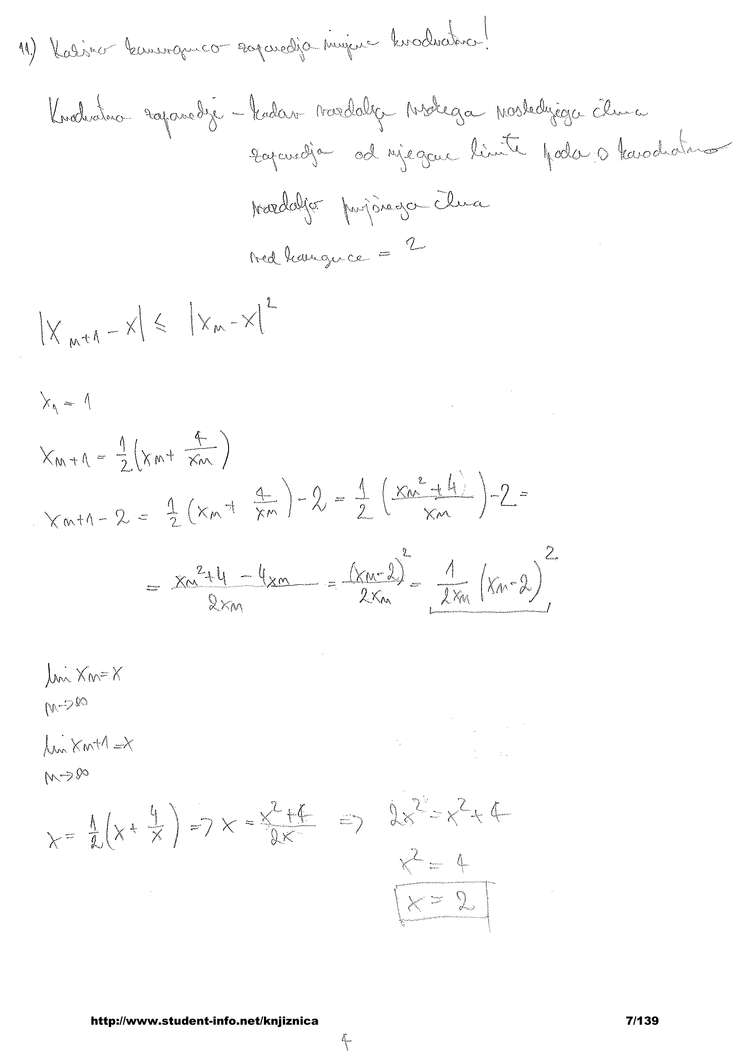 11.) Kakšno konvergenco zaporedja imenujemo kvadratno!
Kvadratno zaporedje – kadar razdalja vsakega naslednjega člena
zaporedja od njegove limite pada s kvadratno
razdaljo prejšnjega člena
red konvergence = 2
|x_{n+1} - x| ≤ |x_n - x|^2
x_1 = 1
x_{n+1} = 1/2 (x_n + 4/x_n)
x_{n+1} - 2 = 1/2 (x_n + 4/x_n) - 2 = 1/2 ((x_n^2 + 4)/x_n) - 2 =
= (x_n^2 + 4 - 4x_n)/(2x_n) = (x_n - 2)^2/(2x_n) = 1/(2x_n) (x_n - 2)^2
lim x_n = x
n→∞
lim x_{n+1} = x
n→∞
x = 1/2 (x + 4/x) => x = (x^2 + 4)/(2x) => 2x^2 = x^2 + 4
x^2 = 4
x = 2
http://www.student-info.net/knjiznica 7/139
4